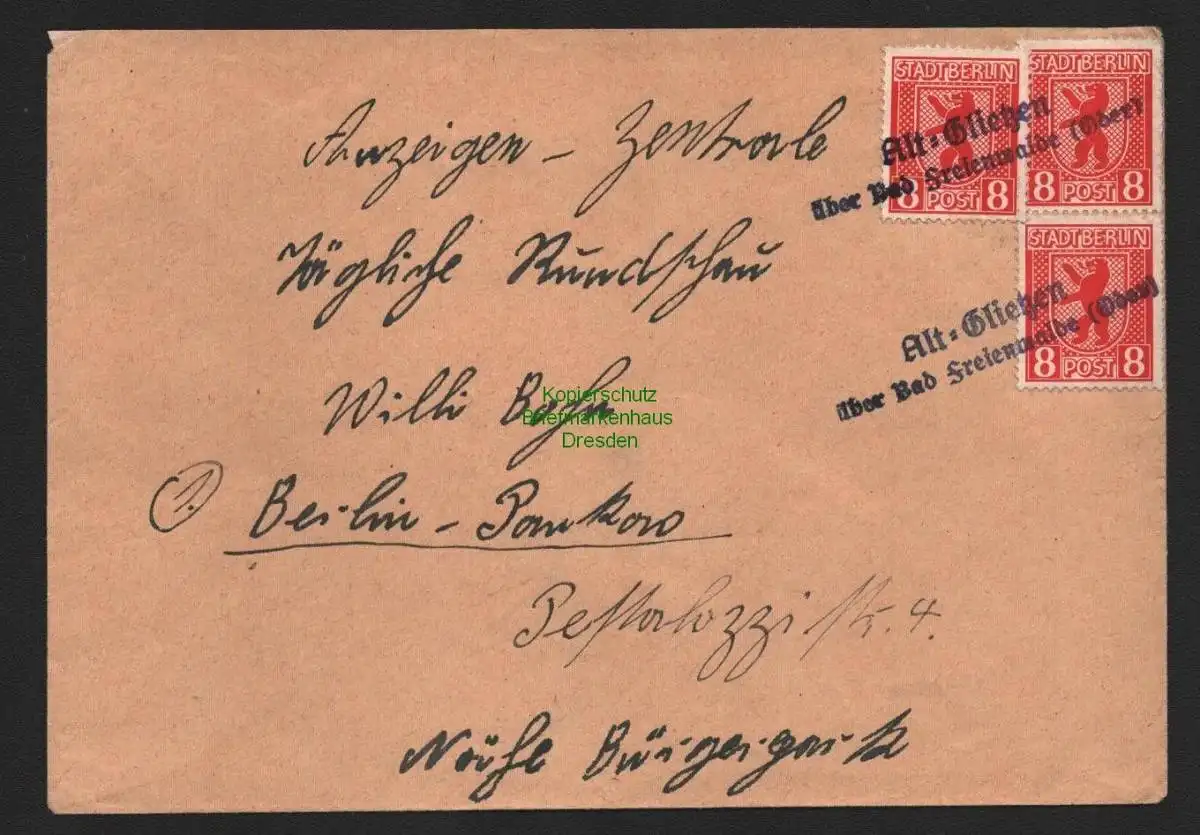 STADT BERLIN
8 POST 8
STADT BERLIN
8 POST 8
STADT BERLIN
8 POST 8
Alt=Gliețen
über Bad Freienwalde (Oder)
Alt=Glietzen
über Bad Freienwalde (Oder)
Anzeigen - Zentrale
Tägliche Rundschau
Willi Bohn
1. Berlin - Pankow
Pestalozzistr. 4.
Nähe Bürgerpark
Kopierschutz
Briefmarkenhaus
Dresden